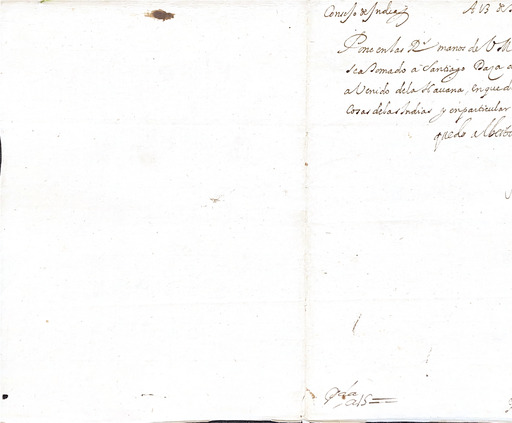 Consejo de Indias A 13 de
Pone en las Rs. manos de V M
se a tomado a Santiago Daza
a Venido de la Havana, en que d
Cosas de las Indias y en particular
quedo
a 15